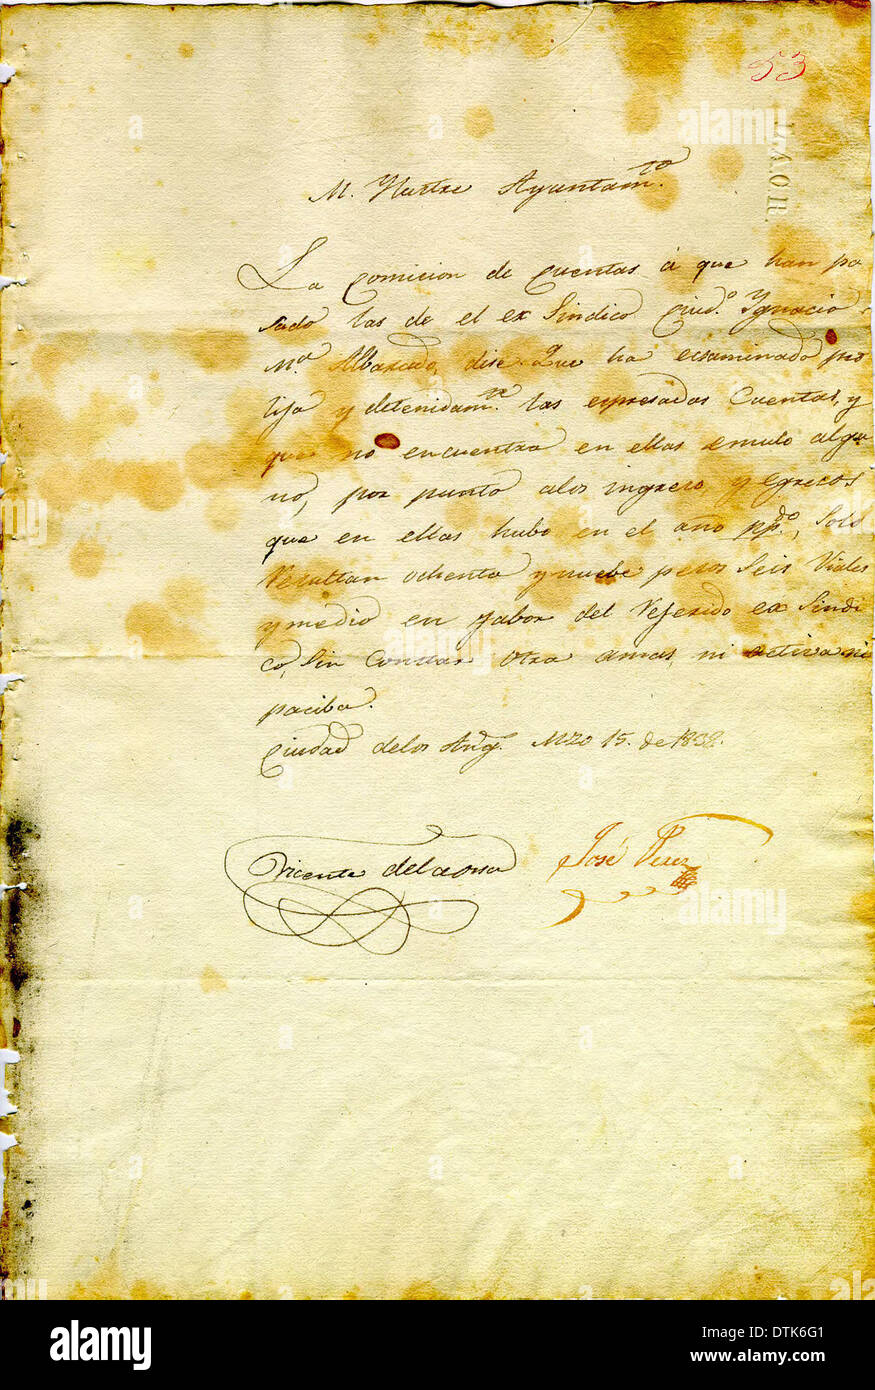 53
M. Yltre Ayuntam.to
La Comicion de Cuentas á que han pa
sado las de el ex Sindico Ciud.o Ygnacio
M.a Albarado, dise Que ha ecsaminado pro
lija y detenidam.te las espresadas Cuentas, y
que no encuentra en ellas algu
no, por punto alos ingreso, y egrecos
que en ellas hubo en el año pp.do, Solo
Resultan ochenta y nuebe pesos Seis Riales
y medio en fabor del Referido ex Sindi
co, Sin Constar otra amas, ni activa ni
paciba.
Ciudad delos Ang.s Mzo 15. de 1838.
Vicente delaossa José Perez
alamy
Image ID: DTK6G1
www.alamy.com